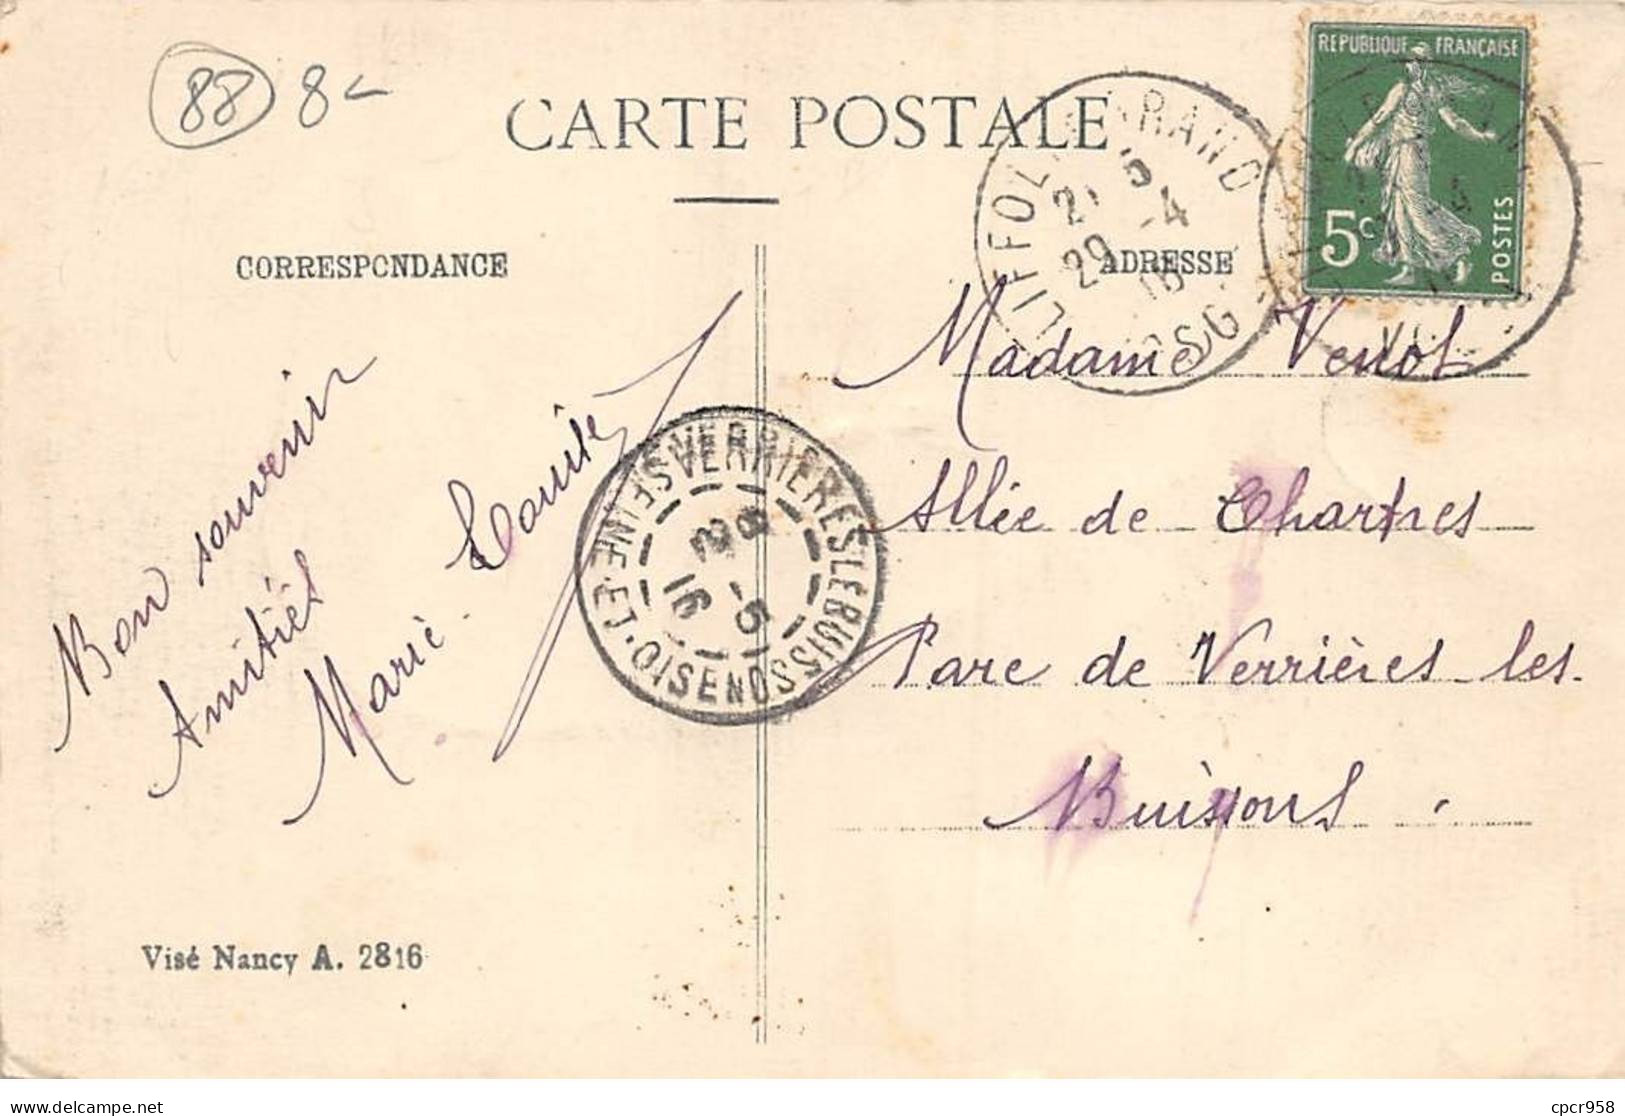 88 8
CARTE POSTALE
REPUBLIQUE FRANÇAISE
5c
POSTES
LIFFOL GRAND
29 -4
16
VOSG
CORRESPONDANCE
ADRESSE
Bon souvenir
Amitiés
Marie
VERRIERES LE BUISSON
SEINE-ET-OISE
-5
16
Madame Venot
Allée de Chartres
Parc de Verrières-les-
Buissons.
Visé Nancy A. 2816
delcampe.net
cpcr958